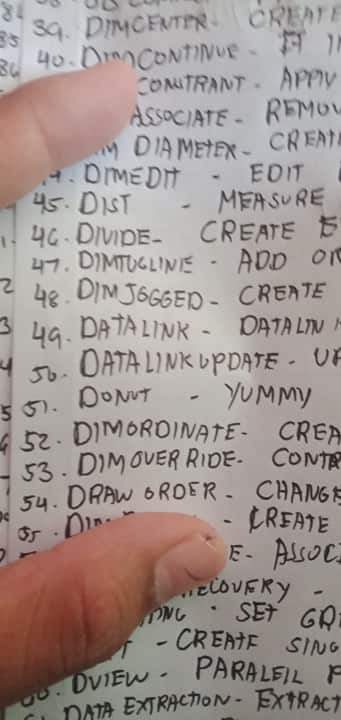 39. DIMCENTER - CREATE
40. DIMCONTINUE - IT
CONSTRANT - APPLV
ASSOCIATE - REMOV
DIAMETER - CREATE
DIMEDIT - EDIT
45. DIST - MEASURE
46. DIVIDE - CREATE E
47. DIMJOGLINE - ADD OR
48. DIMJOGGED - CREATE
49. DATALINK - DATALIN
50. DATALINKUPDATE - UP
51. DONUT - YUMMY
52. DIMORDINATE - CREA
53. DIMOVERRIDE - CONTR
54. DRAW ORDER - CHANGE
55. - CREATE
E - ASSOC
ECOVERY -
ING - SET GR
- CREATE SING
DVIEW - PARALElL P
DATA EXTRACTION - EXTRACT